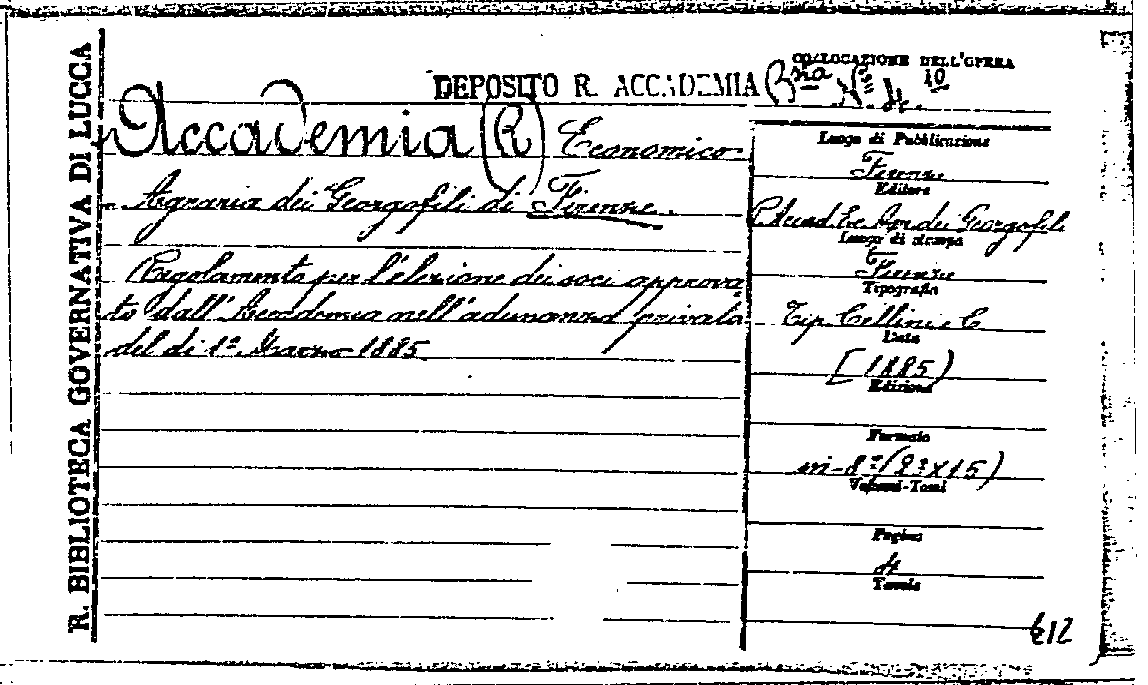 R. BIBLIOTECA GOVERNATIVA DI LUCCA
DEPOSITO R. ACCADEMIA
COLLOCAZIONE DELL'OPERA
Bna N. 4. 10
Accademia (R) Economico-
Agraria dei Georgofili di Firenze.
Regolamento per l'elezione dei soci approva
to dall'Accademia nell'adunanza privata
del dì 1º Marzo 1885
Luogo di Pubblicazione
Firenze
Editore
R. Accad. Ec. Agr. dei Georgofili
Luogo di stampa
Firenze
Tipografia
Tip. Cellini e C
Data
[1885)
Edizione
Formato
in-8º (2?x15)
Volumi-Tomi
Pagine
4
Tavole